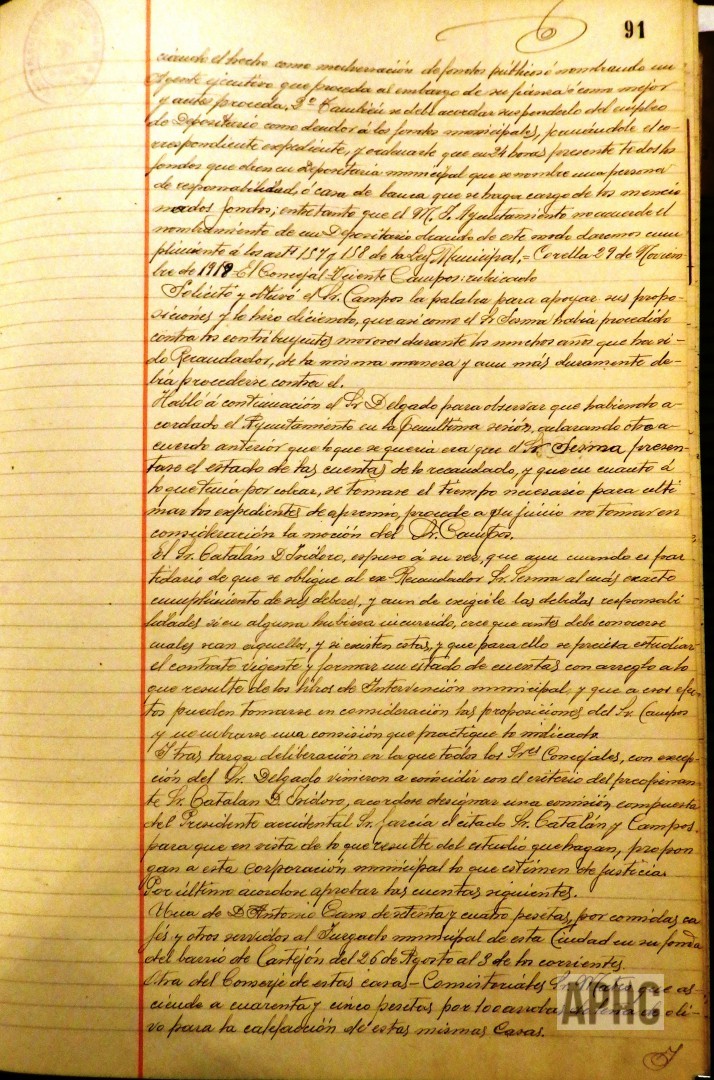 91
ciando el hecho como malversación de fondos públicos ó nombrando un
Agente ejecutivo que proceda al embargo de su fianza ó como mejor
y antes proceda. 2º También se debe acordar suspenderlo del empleo
de Depositario como deudor á los fondos municipales, formándole el co-
rrespondiente expediente, y ordenarle que en 24 horas presente todos los
fondos que obren en Depositaria municipal que se nombre una persona
de responsabilidad, ó casa de banca que se haga cargo de los mencio
nados fondos; entretanto que el M. I. Ayuntamiento no acuerde el
nombramiento de un Depositario obrando de este modo daremos cum
plimiento á los artˢ 157 y 158 de la Ley Municipal.= Corella 29 de Noviem-
bre de 1912=El Concejal Vicente Campos: rubricado
Solicitó y obtuvó el Sr. Campos la palabra para apoyar sus propo-
siciones y lo hizo diciendo, que asi como el Sr Sesma habia procedido
contra los contribuyentes morosos durante los muchos años que ha si-
do Recaudador, de la misma manera y aun más duramente de-
bía procederse contra el.
Habló á continuación el Sr Delgado para observar que habiendo a-
cordado el Ayuntamiento en la penúltima sesion, aclarando otro a-
cuerdo anterior que lo que se queria era que el Sr. Sesma presen-
tase el estado de las cuentas de lo recaudado, y que en cuanto á
lo que tenía por cobrar, se tomase el tiempo necesario para ulti
mar los expedientes de apremio, procede a su juicio no tomar en
consideración la moción del Sr. Campos.
El Sr. Catalán D. Isidoro, espuso á su vez, que aun cuando es par
tidario de que se obligue al ex-Recaudador Sr. Sesma al más exacto
cumplimiento de sus deberes, y aun de exigirle las debidas responsabi
lidades si en alguna hubiera incurrido, cree que antes debe conocerse
cuales sean aquellos, y si existen estas, y que para ello se precisa estudiar
el contrato vigente y formar un estado de cuentas con arreglo a lo
que resulte de los libros de Intervención municipal y que a esos efec
tos pueden tomarse en consideración las proposiciones del Sr. Campos
y nombrarse una comisión que practique lo indicado.
Y tras larga deliberación en la que todos los Sres Concejales, con excep
ción del Sr. Delgado vinieron a coincidir con el criterio del preopinan-
te Sr. Catalan D. Isidoro, acordose designar una comisión compuesta
del Presidente accidental Sr. García el citado Sr. Catalán y Campos.
para que en vista de lo que resulte del estudio que hagan, propon-
gan a esta corporación municipal lo que estimen de justicia.
Por último acordose aprobar las cuentas siguientes.
Una de D. Antonio Cans de setenta y cuatro pesetas, por comidas, ca
fés y otros servidos al Juzgado municipal de esta Ciudad en su fonda
del barrio de Castejón del 26 de Agosto al 3 de los corrientes.
Otra del Conserje de estas casas-Consistoriales Sr. Mateo que as-
ciende a cuarenta y cinco pesetas por leña de oli-
vo para la calefacción de estas mismas Casas.
APHC